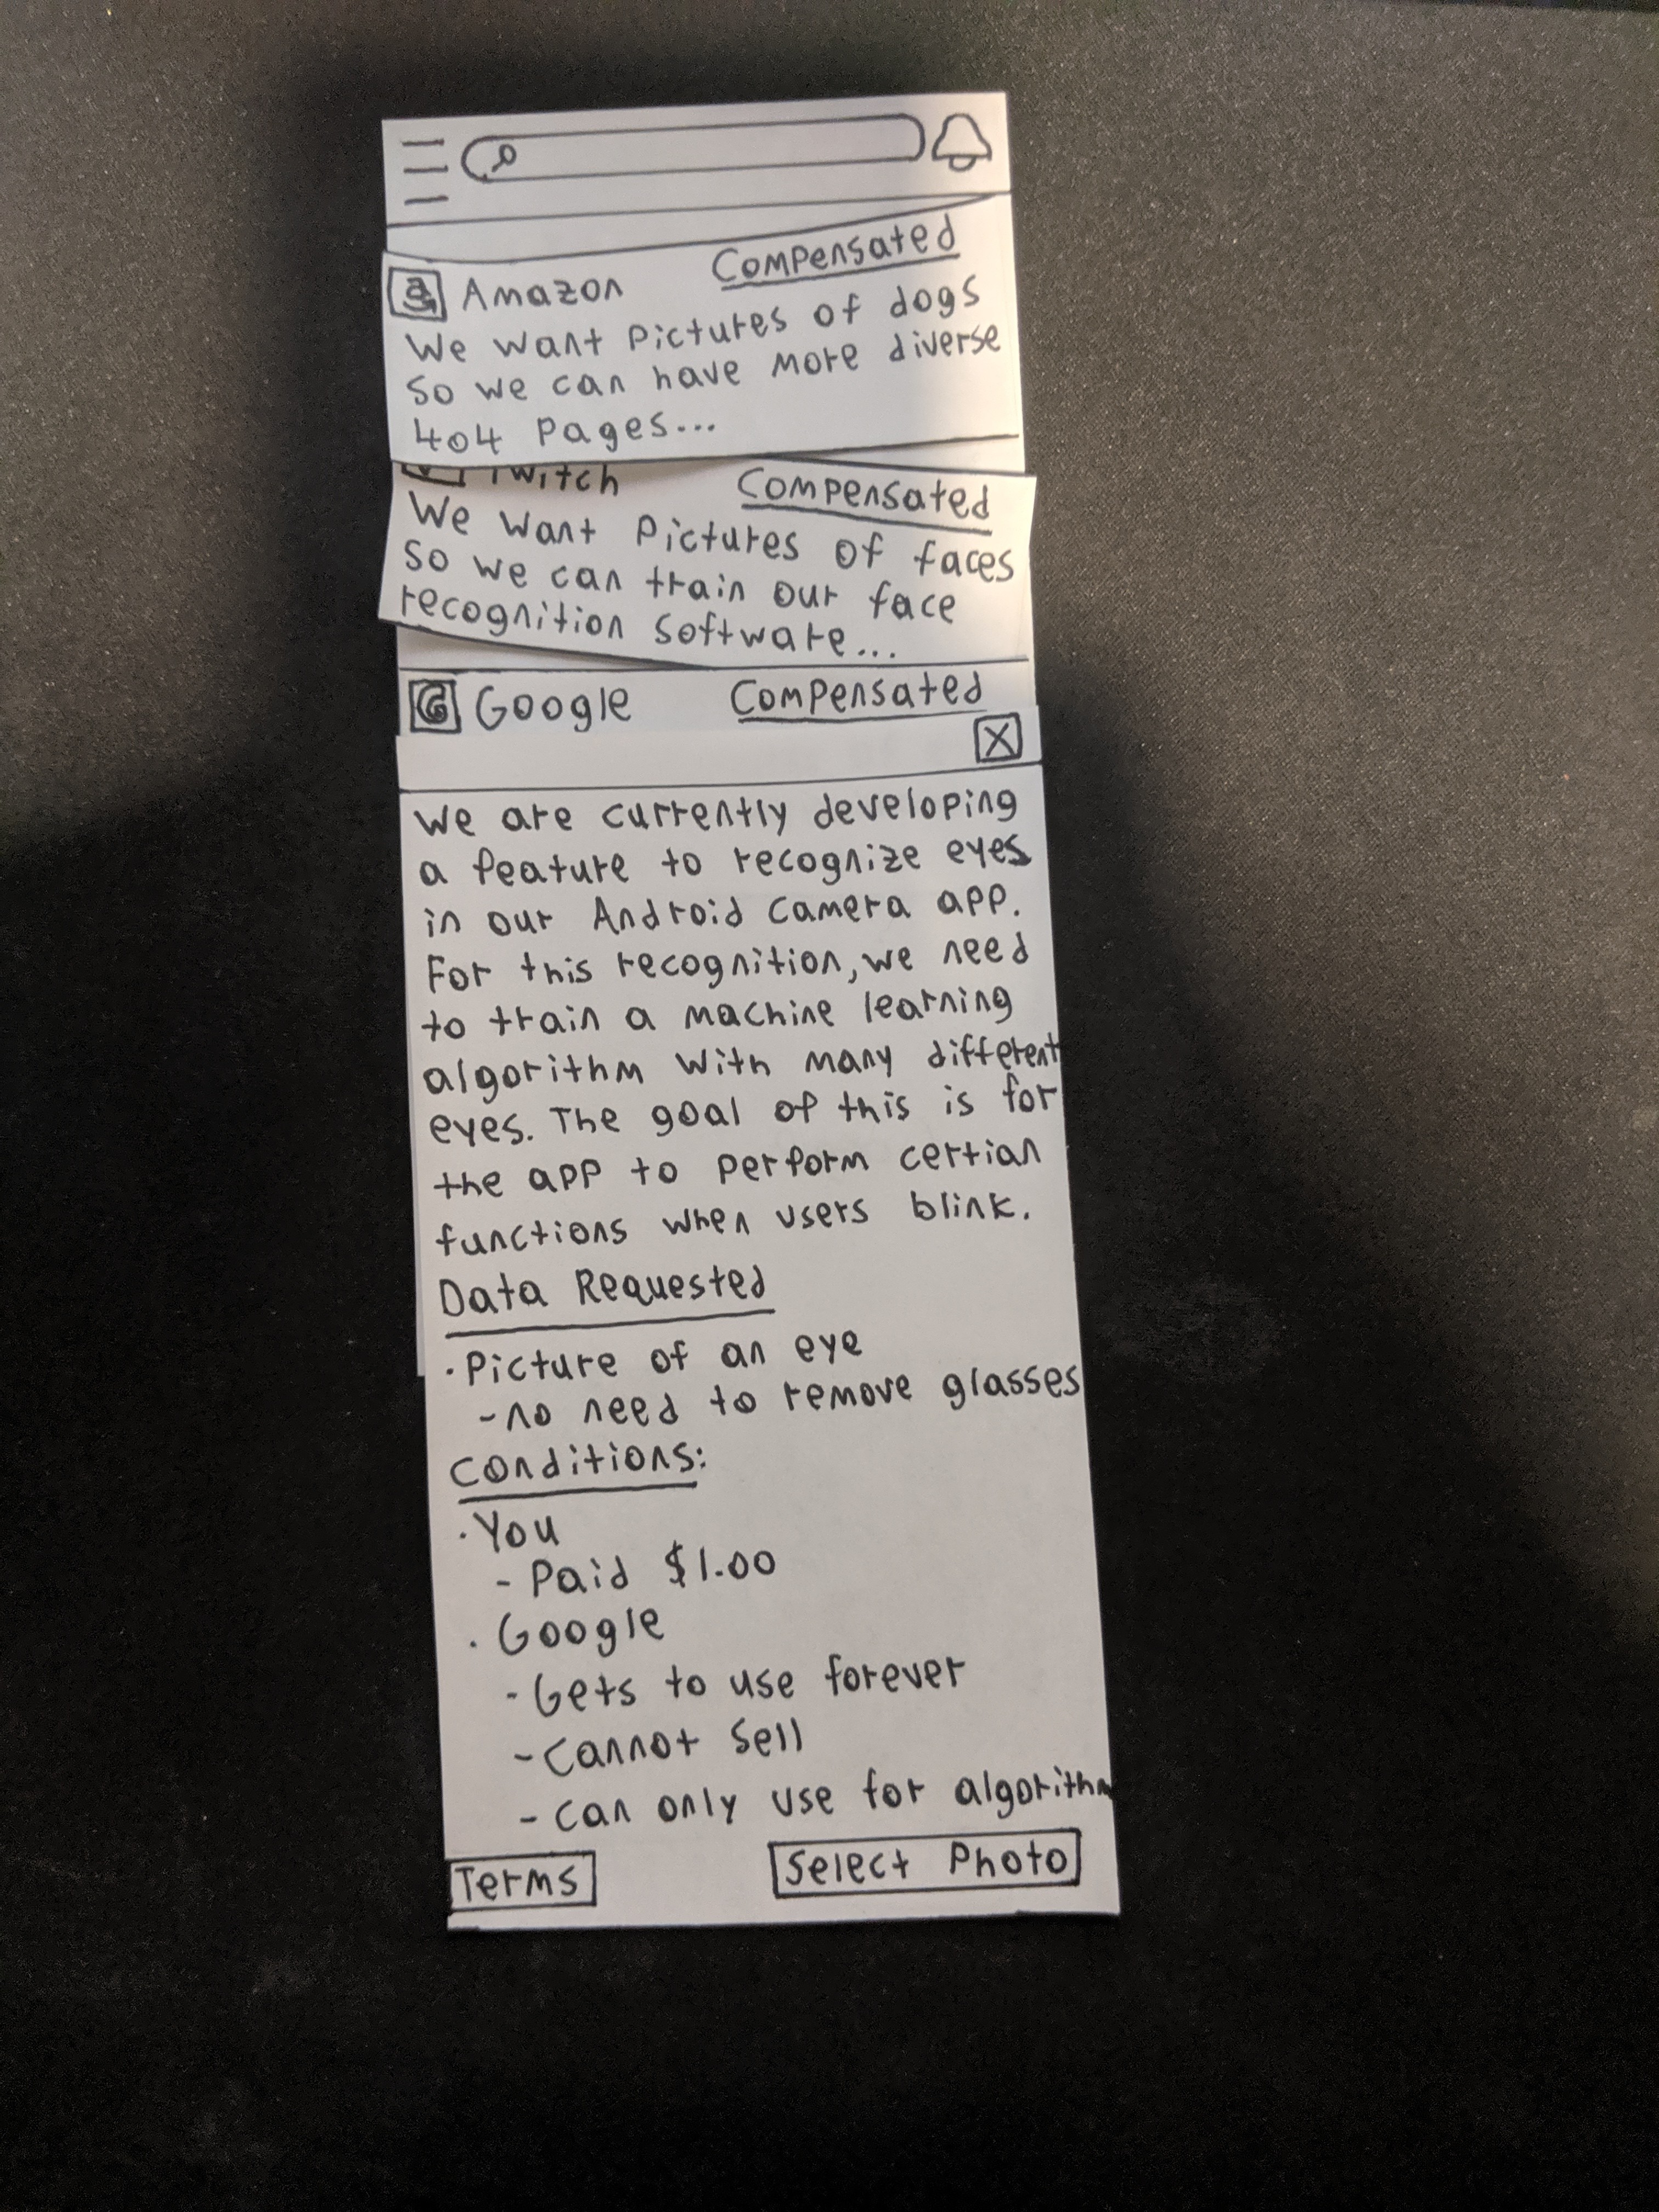 Amazon Compensated
We want pictures of dogs
so we can have more diverse
404 pages...
Twitch Compensated
We want pictures of faces
so we can train our face
recognition software...
G Google Compensated
X
We are currently developing
a feature to recognize eyes
in our Android camera app.
For this recognition, we need
to train a machine learning
algorithm with many different
eyes. The goal of this is for
the app to perform certian
functions when users blink.
Data Requested
· Picture of an eye
- no need to remove glasses
Conditions:
· You
- Paid $1.00
· Google
- Gets to use forever
- Cannot sell
- Can only use for algorithm
Terms Select Photo